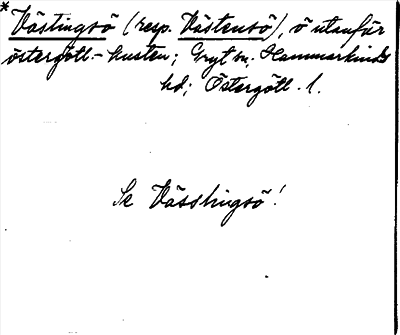 * Västingsö (resp. Västensö), ö utanför
östergötl.-kusten; Gryt sn; Hammarkinds
hd; Östergötl. l.
Se Vässlingsö!